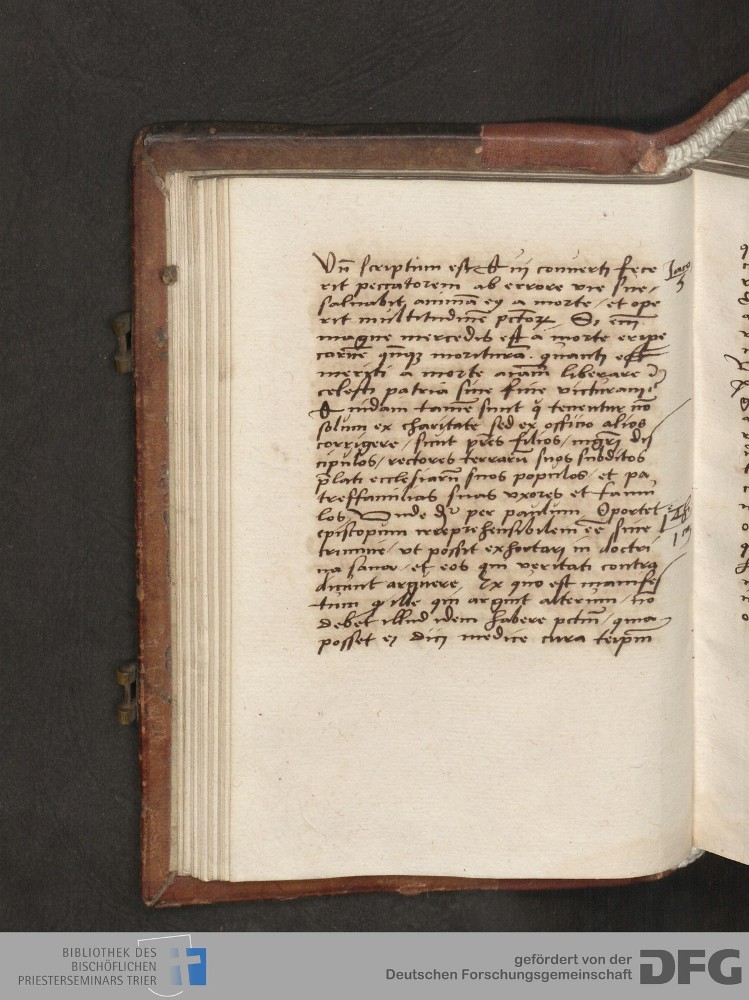 Vn̄ scriptum est Qui conuerti fece
rit peccatorem ab errore vie sue /
saluabit animā eiꝰ a morte / et ope
rit multitudinē pctōꝝ. Si em̄
magne mercedis est a morte eripe
carnē qn̄qꝫ morituram. quanti est
meriti a morte aīam liberare
celesti patria sine fine victuram?
Quidam tamē sunt q̄ tenentur nō
solum ex charitate sed ex officio alios
corrigere / sunt pr̄es filios / mgr̄i dis
cipulos / rectores terrarū suos subditos
p̄lati ecclesiarū suos populos / et pa
treffamilias suas vxores et famu
los. Unde dr̄ per paulum. Oportet
episcopum irreprehensibilem eē sine
crimine / vt possit exhortari in doctri
na sana / et eos qui veritati contra
dicunt arguere. Ex quo est manifes
tum ꝙ ille qui arguit alterum / nō
debet illud idem habere pctm̄ / quia
posset ei dici medice cura teipm̄
Jaco
5
BIBLIOTHEK DES
BISCHÖFLICHEN
PRIESTERSEMINARS TRIER
gefördert von der
Deutschen Forschungsgemeinschaft
DFG